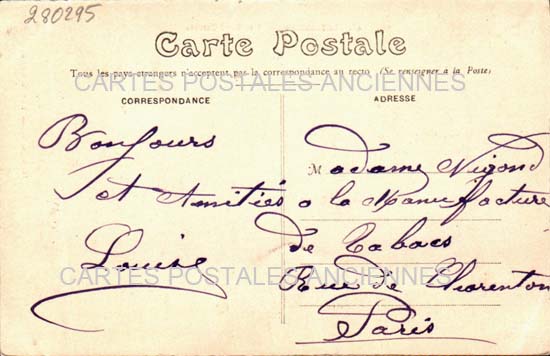 280295
Carte Postale
Tous les pays étrangers n'acceptent pas la correspondance au recto (Se renseigner à la Poste)
CARTES POSTALES ANCIENNES
CORRESPONDANCE
ADRESSE
Bonjours
et Amitiés
Louise
Madame Nigond
a la Manufacture
de Tabacs
Rue de Charenton
Paris
CARTES POSTALES ANCIENNES